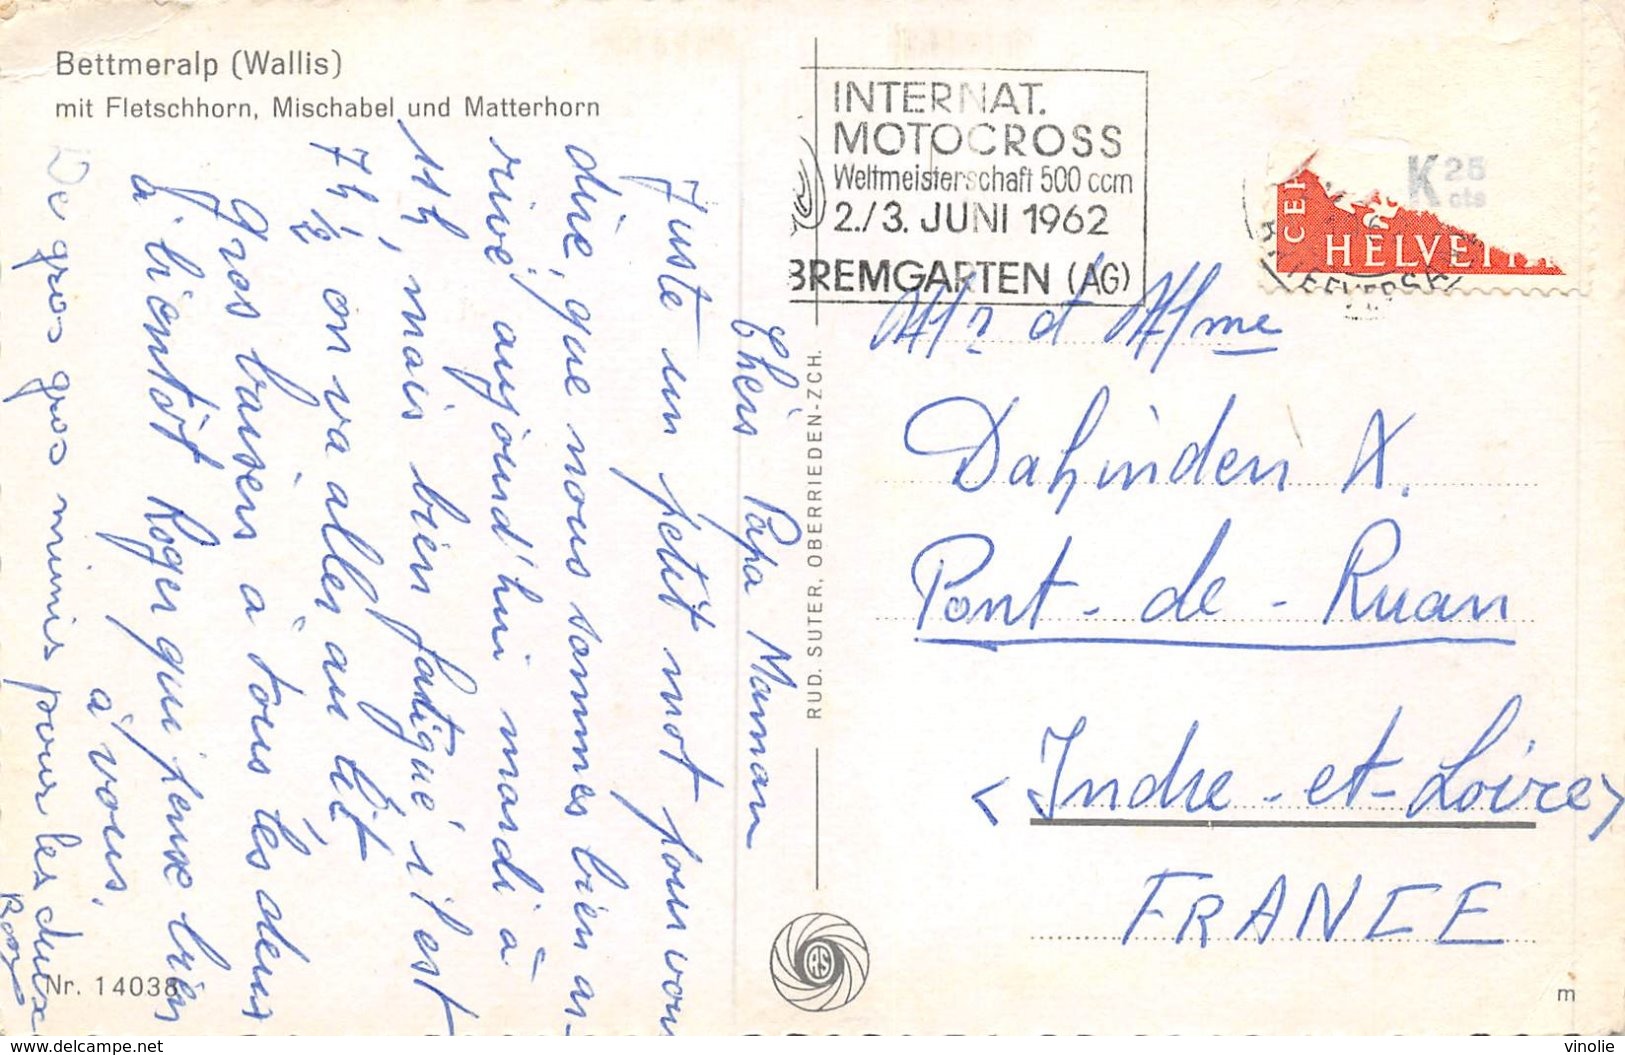 Bettmeralp (Wallis)
mit Fletschhorn, Mischabel und Matterhorn
Chers Papa Maman
Juste un petit mot pour vous
dire, que nous sommes bien ar-
rivé aujourd'hui mardi à
11h, mais bien fatigué il est
7h ½ on va aller au lit
Gros baisers à tous les deux
à bientôt Roger qui pense bien
à vous.
De gros gros mimis pour les deux
Nr. 14038
RUD. SUTER, OBERRIEDEN-ZCH.
RS
INTERNAT.
MOTOCROSS
Weltmeisterschaft 500 ccm
2./3. JUNI 1962
BREMGARTEN (AG)
K 25
cts
CEP
HELVETI
Mr et Mme
Dahinden X.
Pont-de-Ruan
<Indre-et-Loire>
FRANCE
m
https://www.delcampe.net
vinolie